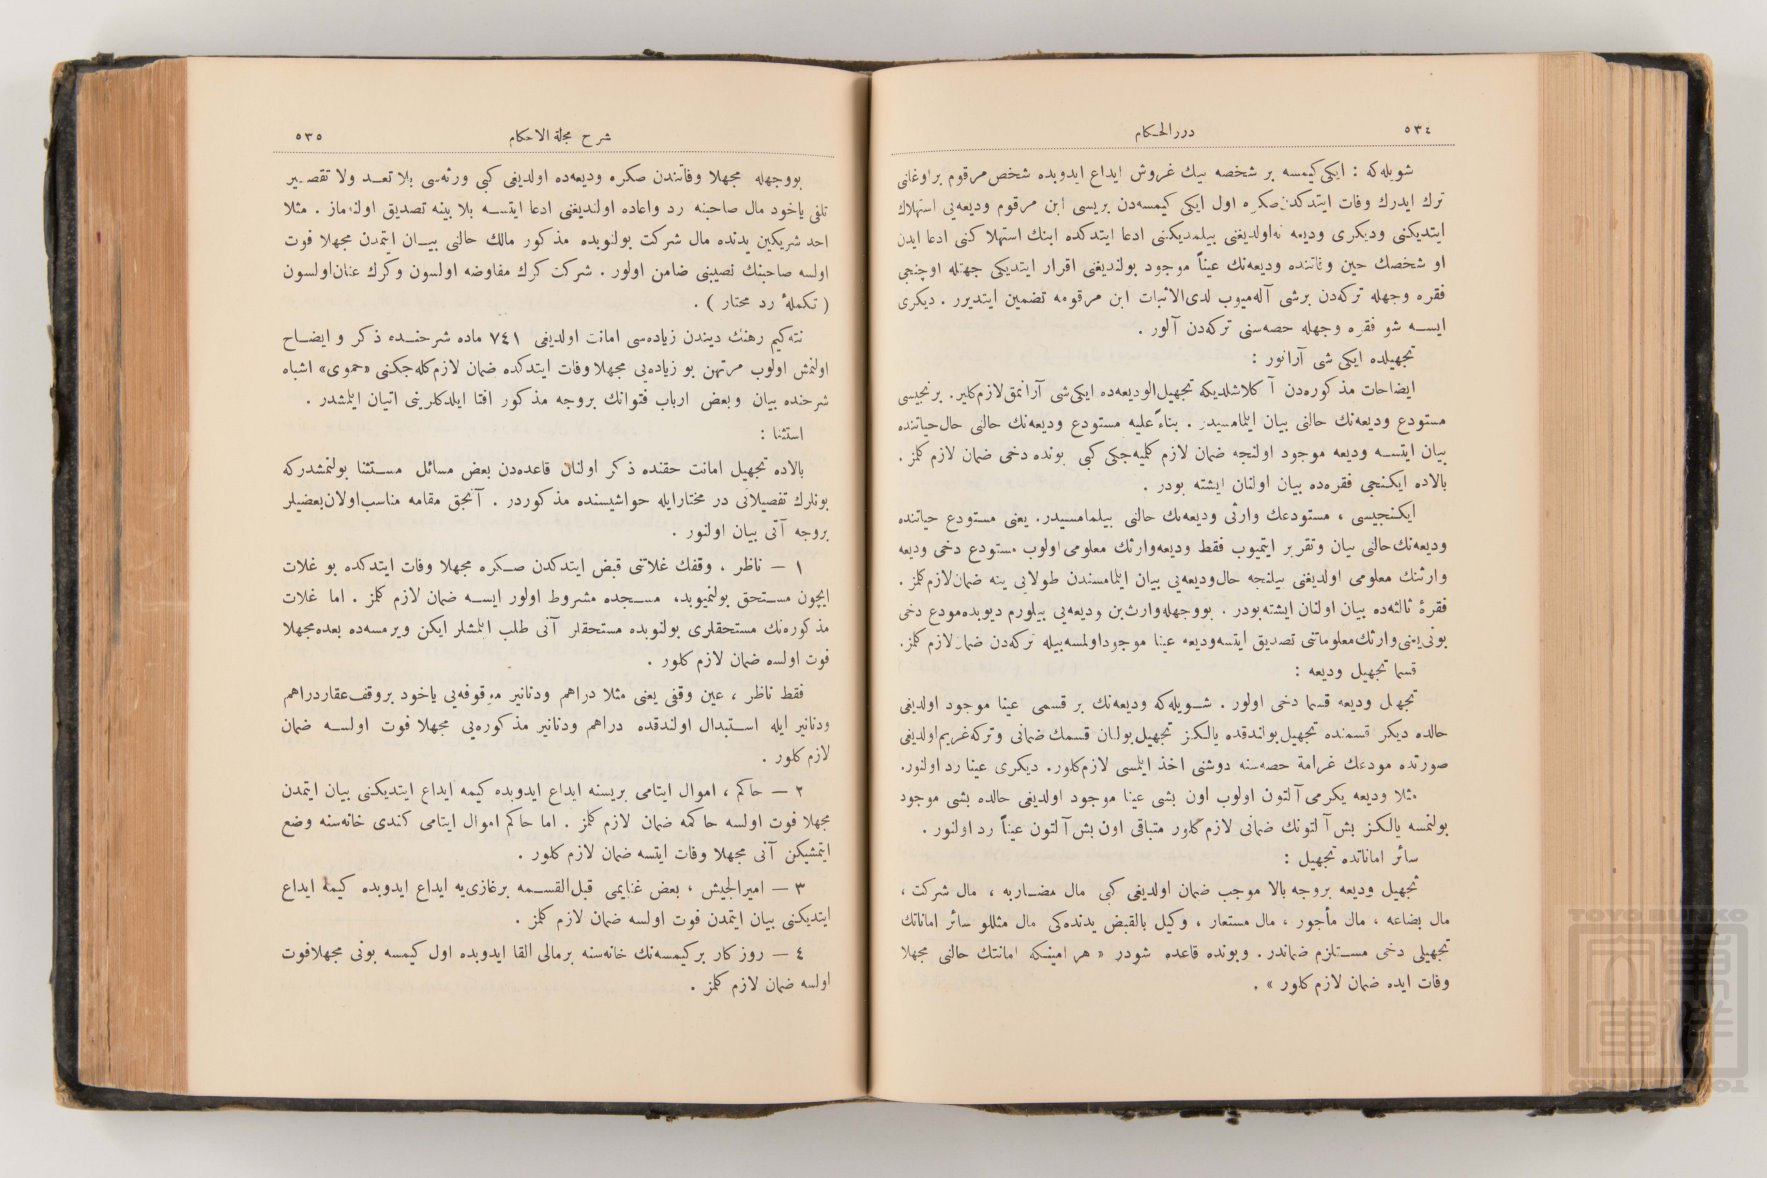 ٥٣٤
دررالحكام
شويله‌كه : ايكى كيمسه بر شخصه بيك غروش ايداع ايدوبده شخص مرقوم براوغلنى
ترك ايدرك وفات ايتدكدن صكره اول ايكى كيمسه‌دن بريسى ابن مرقوم وديعه‌يى استهلاك
ايتديكنى وديكرى وديعه نه‌اولديغنى بيلمديكنى ادعا ايتدكده ابنك استهلاكنى ادعا ايدن
او شخصك حين وفاتنده وديعه‌نك عيناً موجود بولنديغنى اقرار ايتديكى جهتله اوچنجى
فقره وجهله تركه‌دن برشى آله‌ميوب لدى‌الاثبات ابن مرقومه تضمين ايتديرر . ديكرى
ايسه شو فقره وجهله حصه‌سنى تركه‌دن آلور .
تجهيلده ايكى شى آرانور :
ايضاحات مذكوره‌دن آكلاشلديكه تجهيل‌الوديعه‌ده ايكى‌شى آرانمق لازم كلير. برنجيسى
مستودع وديعه‌نك حالنى بيان ايلمامسيدر . بناءً عليه مستودع وديعه‌نك حالنى حال‌حياتنده
بيان ايتسه وديعه موجود اولنجه ضمان لازم كلميه‌جكى كبى بونده دخى ضمان لازم كلمز .
بالاده ايكنجى فقره‌ده بيان اولنان ايشته بودر .
ايكنجيسى ، مستودعك وارثى وديعه‌نك حالنى بيلمامسيدر. يعنى مستودع حياتنده
وديعه‌نك حالنى بيان وتقرير ايتميوب فقط وديعه‌وارثك معلومى اولوب مستودع دخى وديعه
وارثنك معلومى اولديغنى بيلنجه حال‌وديعه‌يى بيان ايلمامسندن طولايى ينه ضمان‌لازم كلمز .
فقرهٔ ثالثه‌ده بيان اولنان ايشته بودر . بووجهله وارث بن وديعه‌يى بيلورم ديوبده مودع دخى
بونى يعنى وارثك معلوماتنى تصديق ايتسه وديعه عينا موجود اولمسه بيله تركه‌دن ضمان لازم كلمز.
قسما تجهيل وديعه :
تجهل وديعه قسما دخى اولور . شويله‌كه وديعه‌نك بر قسمى عينا موجود اولديغى
حالده ديكر قسمنده تجهيل بولندقده يالكز تجهيل بولنان قسمك ضمانى وتركه غريم اولديغى
صورتده مودعك غرامة حصه‌سنه دوشنى اخذ ايلمسى لازم كلور. ديكرى عينا رد اولنور.
مثلا وديعه يكرمى آلتون اولوب اون بشى عينا موجود اولديغى حالده بشى موجود
بولنمسه يالكز بش آلتونك ضمانى لازم كلور متباقى اون بش آلتون عيناً رد اولنور .
سائر اماناتده تجهيل :
تجهيل وديعه بروجه بالا موجب ضمان اولديغى كبى مال مضاربه ، مال شركت ،
مال بضاعه ، مال مأجور ، مال مستعار ، وكيل بالقبض يدنده‌كى مال مثللو سائر اماناتك
تجهيلى دخى مستلزم ضماندر . وبونده قاعده شودر « هر امينكه امانتك حالنى مجهلا
وفات ايده ضمان لازم كلور » .
شرح مجلة الاحكام
٥٣٥
بووجهله مجهلا وفاتندن صكره وديعه‌ده اولديغى كبى ورثه‌سى بلا تعد ولا تقصير
تلفى ياخود مال صاحبنه رد واعاده اولنديغنى ادعا ايتسه بلا بينه تصديق اولنماز . مثلا
احد شريكين يدنده مال شركت بولنوبده مذكور مالك حالنى بيان ايتمدن مجهلا فوت
اولسه صاحبنك نصيبنى ضامن اولور . شركت كرك مفاوضه اولسون وكرك عنان‌اولسون
( تكملهٔ رد محتار ) .
نته‌كيم رهنك ديندن زياده‌سى امانت اولديغى ٧٤١ ماده شرحنده ذكر و ايضاح
اولنمش اولوب مرتهن بو زياده‌يى مجهلا وفات ايتدكده ضمان لازم كله‌جكنى «حموى» اشباه
شرحنده بيان وبعض ارباب فتوانك بروجه مذكور افتا ايلدكلرينى اتيان ايلمشدر .
استثنا :
بالاده تجهيل امانت حقنده ذكر اولنان قاعده‌دن بعض مسائل مستثنا بولنمشدركه
بونلرك تفصيلاتى در مختارايله حواشيسنده مذكوردر . آنجق مقامه مناسب‌اولان‌بعضيلر
بروجه آتى بيان اولنور .
١ — ناظر ، وقفك غلاتنى قبض ايتدكدن صكره مجهلا وفات ايتدكده بو غلات
ايچون مستحق بولنميوبد، مسجده مشروط اولور ايسه ضمان لازم كلمز . اما غلات
مذكوره‌نك مستحقلرى بولنوبده مستحقلر آنى طلب ايلمشلر ايكن ويرمسه‌ده بعده‌مجهلا
فوت اولسه ضمان لازم كلور .
فقط ناظر ، عين وقفى يعنى مثلا دراهم ودنانير موقوفه‌يى ياخود بروقف عقاردراهم
ودنانير ايله استبدال اولندقده دراهم ودنانير مذكوره‌يى مجهلا فوت اولسه ضمان
لازم كلور .
٢ — حاكم ، اموال ايتامى بريسنه ايداع ايدوبده كيمه ايداع ايتديكنى بيان ايتمدن
مجهلا فوت اولسه حاكمه ضمان لازم كلمز . اما حاكم اموال ايتامى كندى خانه‌سنه وضع
ايتمشيكن آنى مجهلا وفات ايتسه ضمان لازم كلور .
٣ — اميرالجيش ، بعض غنايمى قبل‌القسمه برغازى‌يه ايداع ايدوبده كيمه ايداع
ايتديكنى بيان ايتمدن فوت اولسه ضمان لازم كلمز .
٤ — روزكار بركيمسه‌نك خانه‌سنه برمالى القا ايدوبده اول كيمسه بونى مجهلافوت
اولسه ضمان لازم كلمز .
TOYO BUNKO